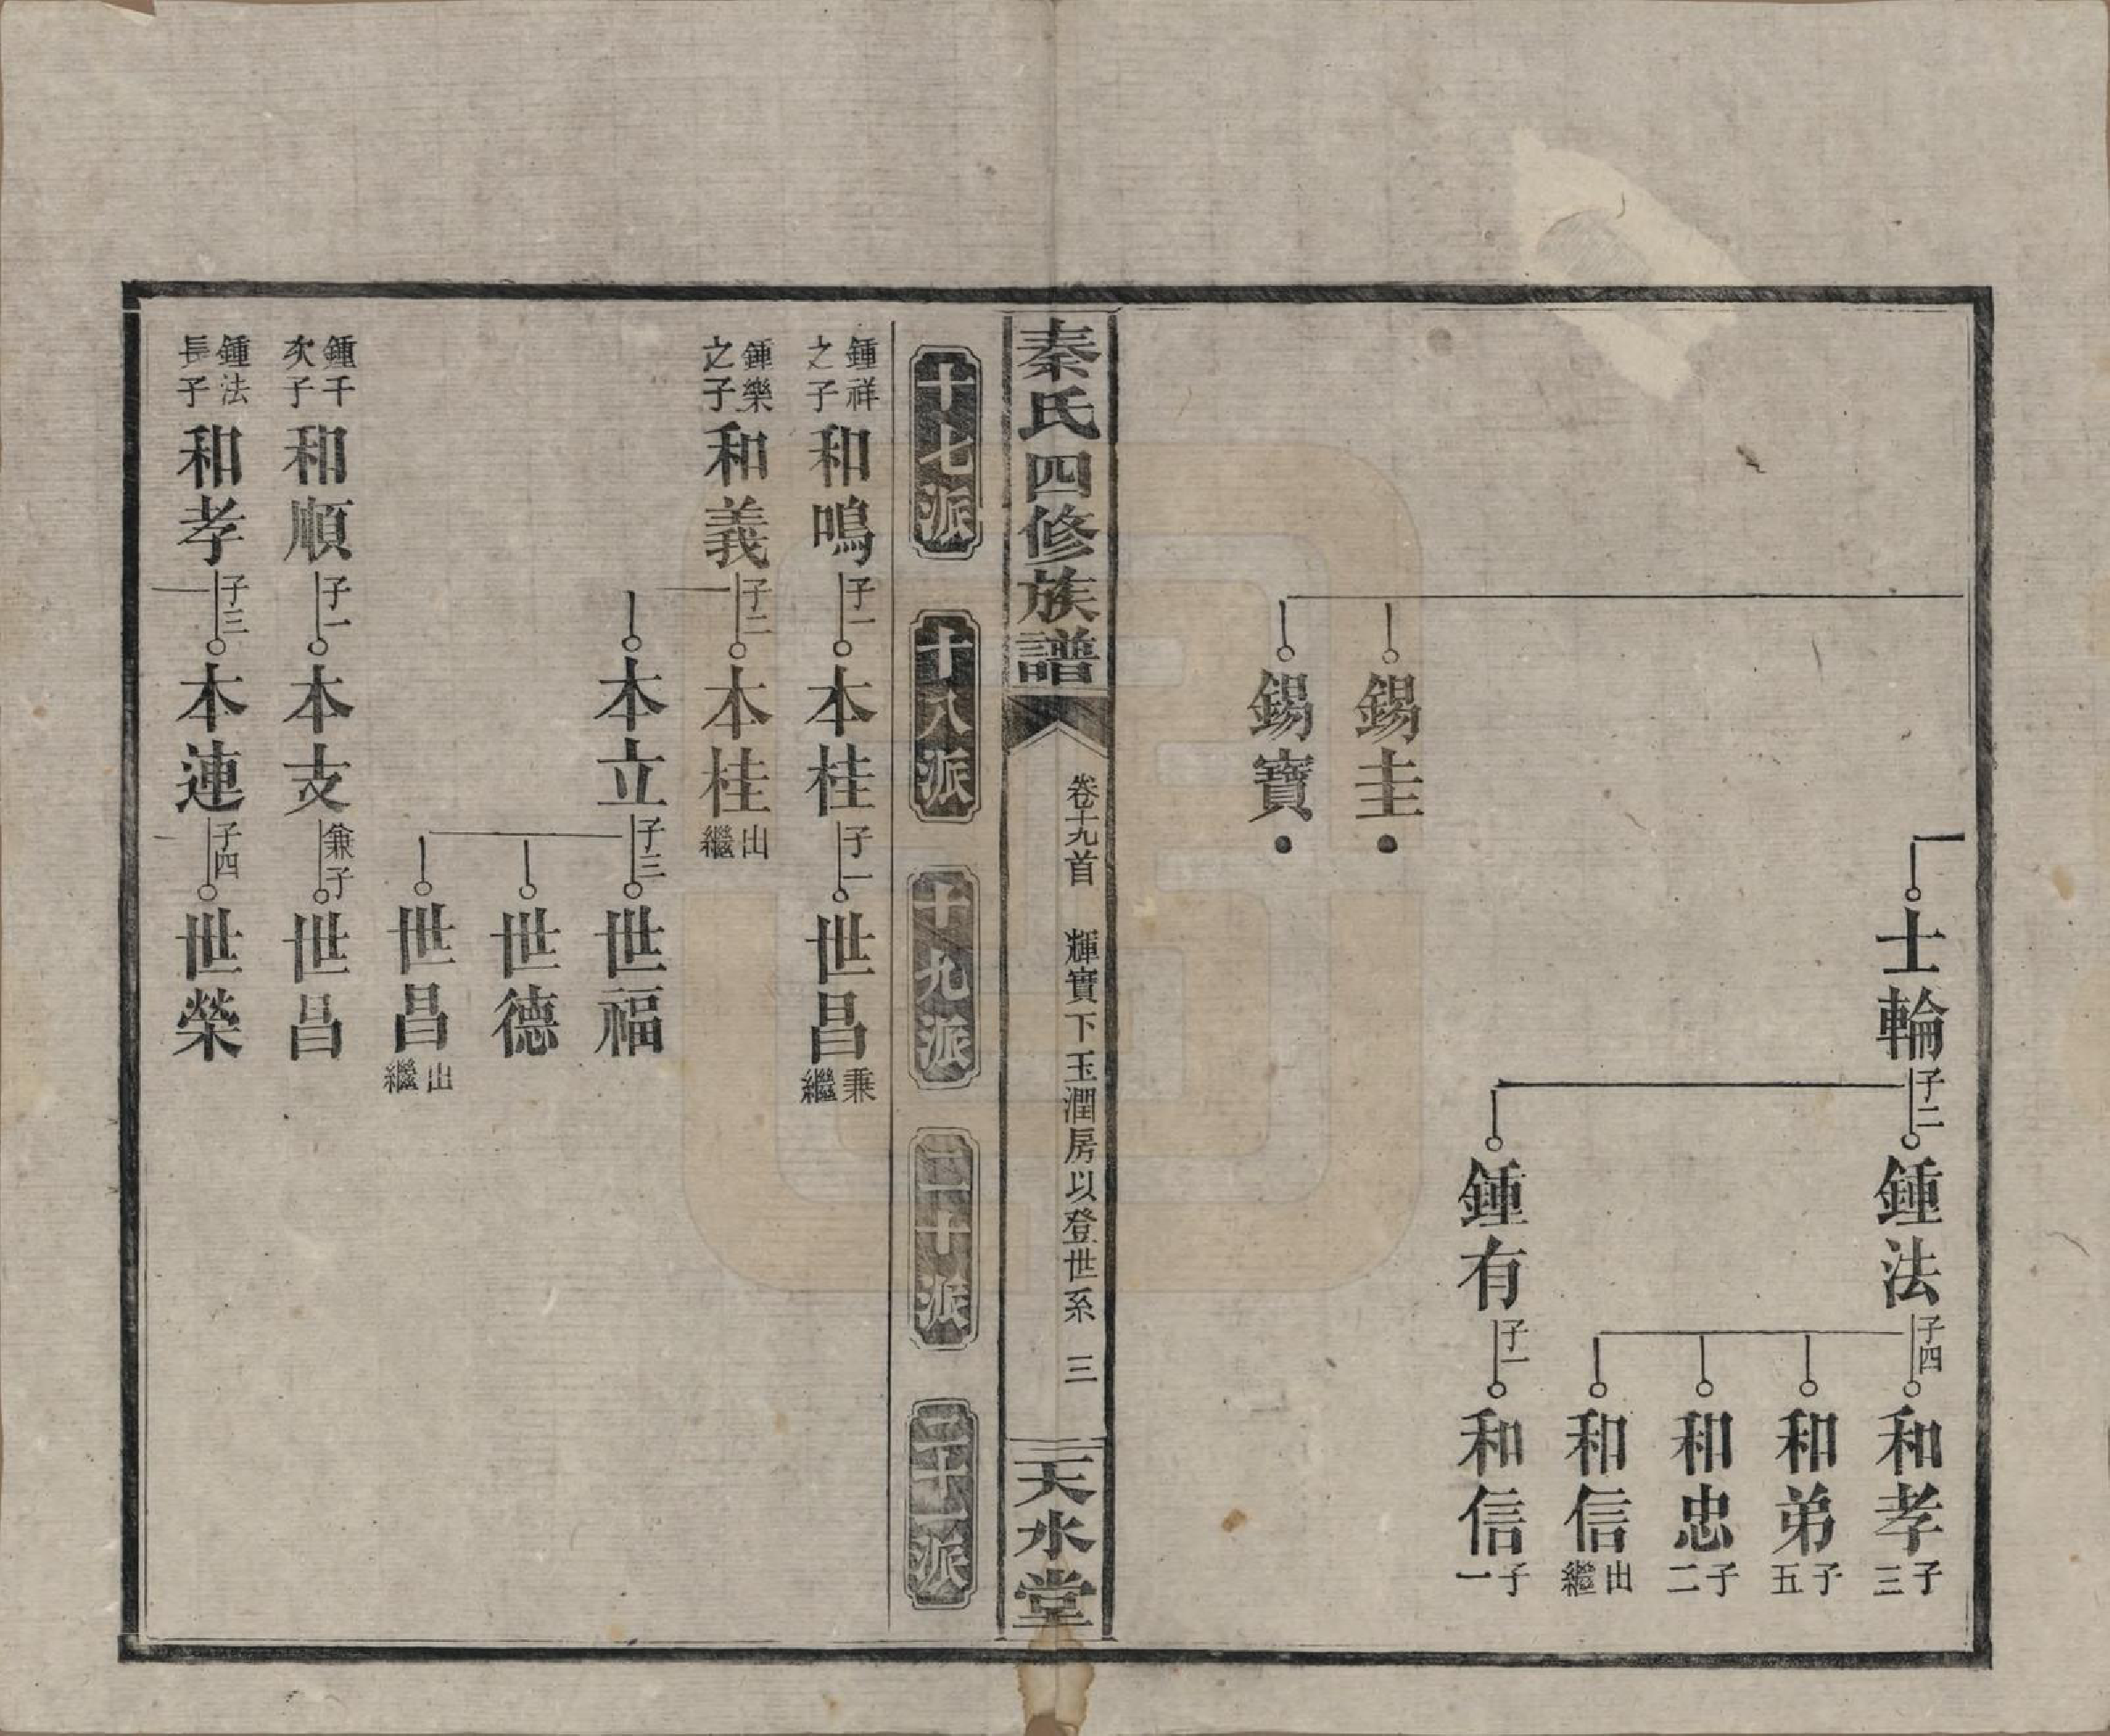 士輪 子二
鍾法 子四
和孝 子三
和弟 子五
和忠 子二
和信 出繼
鍾有 子一
和信 子一
錫圭
錫寶
秦氏四修族譜
卷十九首 輝實下玉潤房以登世系 三
天水堂
十七派 十八派 十九派 二十派 二十一派
鍾祥之子 和鳴 子一 本桂 子一 世昌 兼繼
鍾樂之子 和義 子二 本桂 出繼
本立 子三 世福
世德
世昌 出繼
鍾千次子 和順 子一 本支 兼子 世昌
鍾法長子 和孝 子三 本連 子四 世榮